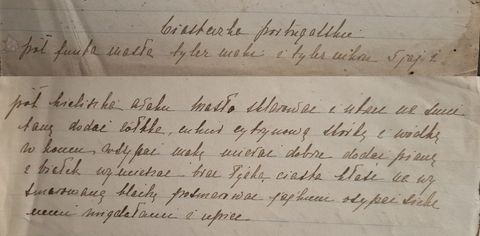 Ciasteczka portugalskie
pół funta masła tyleż mąki i tyleż cukru 5 jaj i
pół kieliszka araku masło sklarować i utrzeć na śmie
tanę dodać żółtka, cukier cytrynową skórkę i wódkę
w końcu wsypać mąkę mieszać dobrze dodać pianę
z białek wymieszać brać łyżką ciasta kłaść na wy
smarowaną blachę posmarować jajkiem osypać sieka
nemi migdałami i upiec